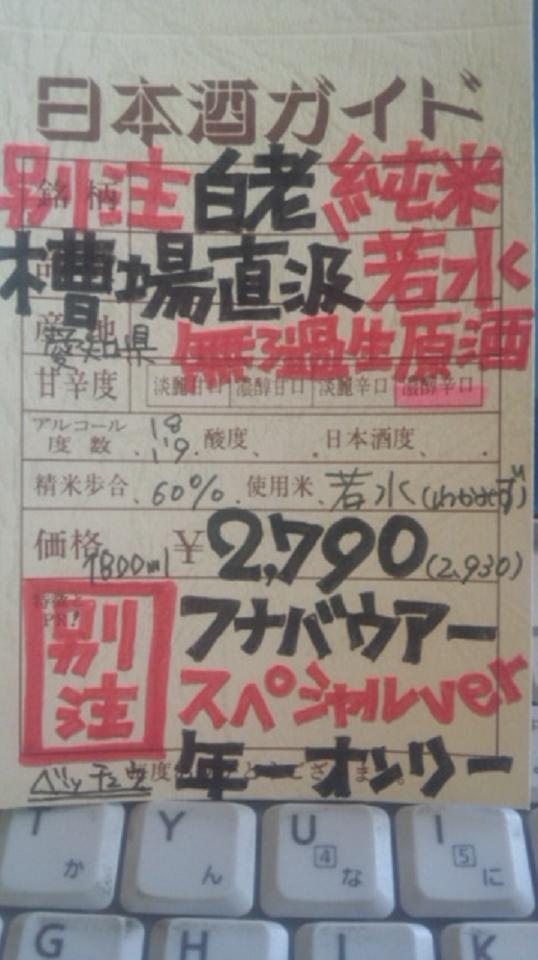 日本酒ガイド
銘柄 別注 白老 純米
槽場直汲 若水
産地 愛知県 無ろ過生原酒
甘辛度 淡麗甘口 濃醇甘口 淡麗辛口 濃醇辛口
アルコール度数 18 19 酸度 日本酒度
精米歩合 60% 使用米 若水(わかみず)
価格 1800ml ¥2,790(2,930)
PR!
別注
フナバウアー
スペシャルver
年一オンリー
ベッチュウ
T か
Y ん
U 4 な
I 5 に
G
H
J
K